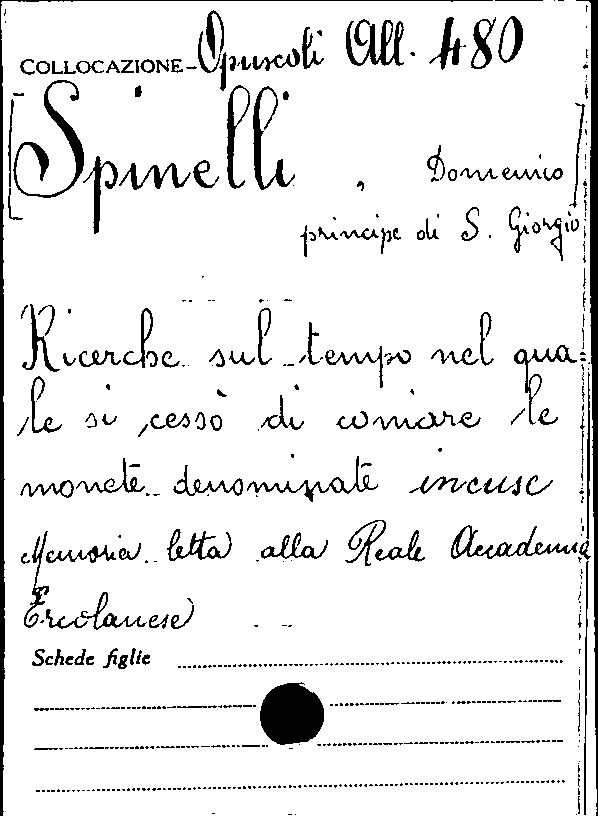 COLLOCAZIONE Opuscoli All. 480
[Spinelli, Domenico]
principe di S. Giorgio
Ricerche sul tempo nel qua=
le si cessò di coniare le
monete denominate incuse
Memoria letta alla Reale Accademia
Ercolanese
Schede figlie